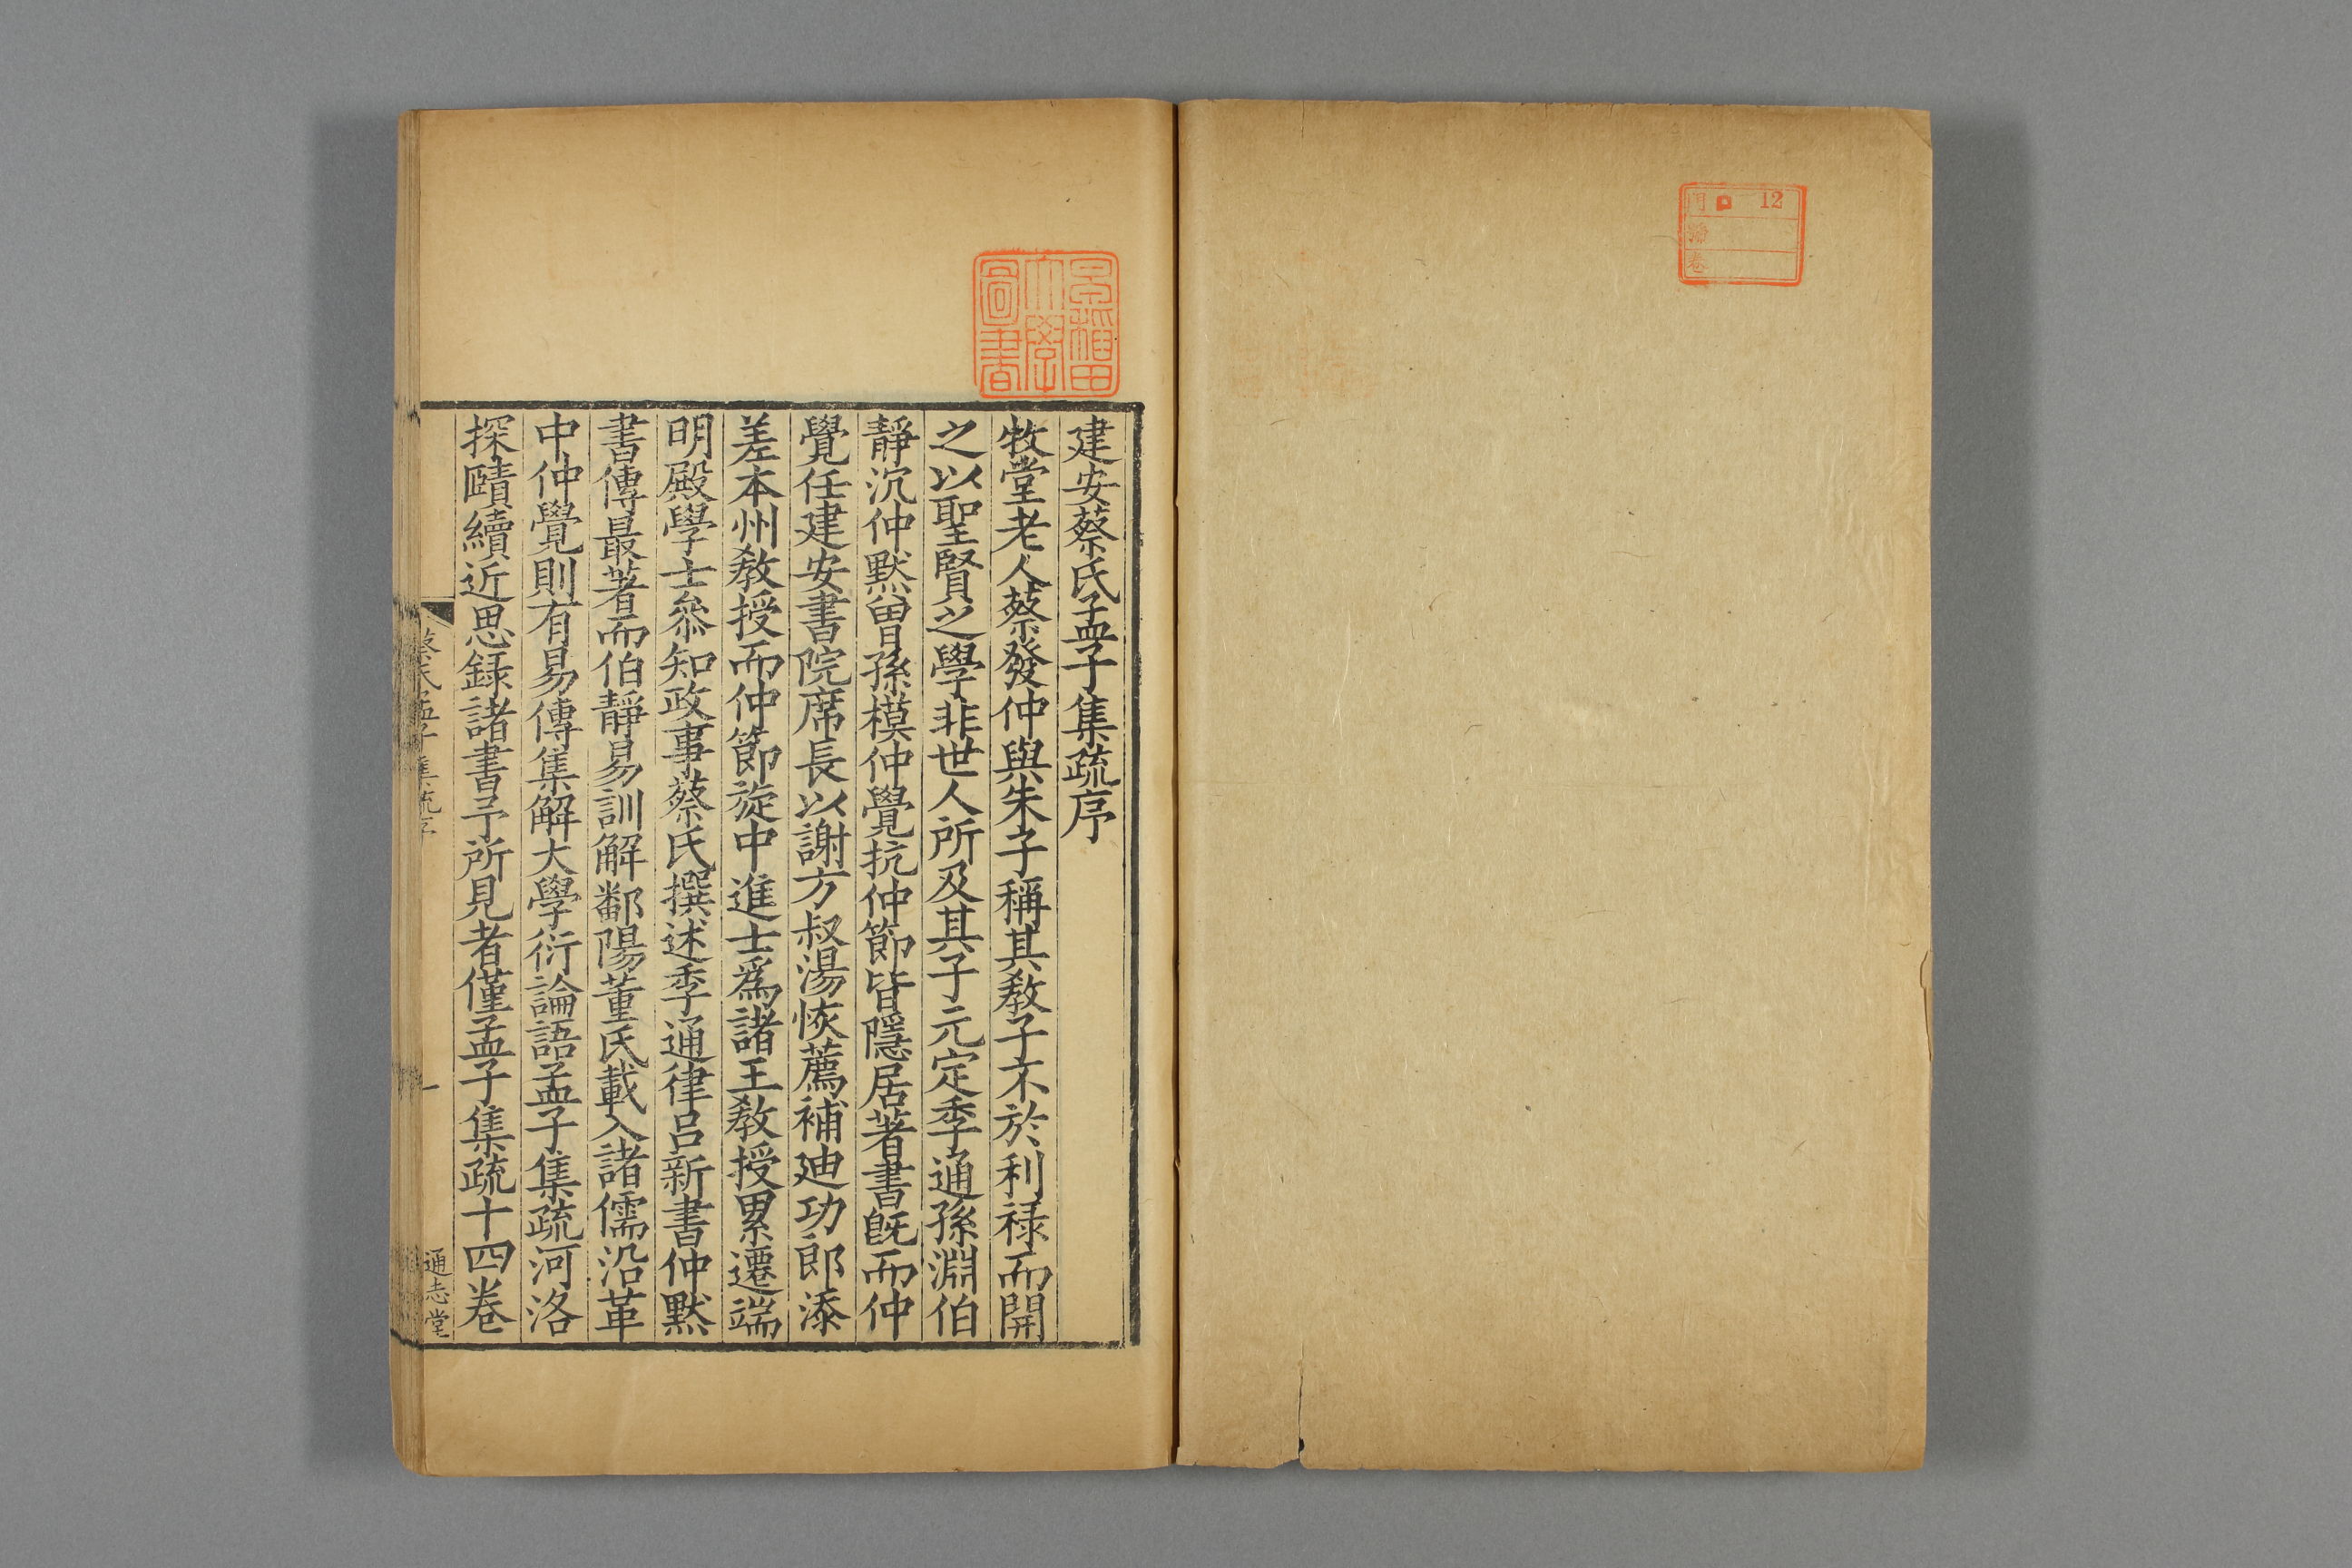 門 口 12
號
卷
早稲田
大學
圖書
建安蔡氏孟子集疏序
牧堂老人蔡發仲與朱子稱其敎子不於利禄而開
之以聖賢之學非世人所及其子元定季通孫淵伯
靜沉仲黙曾孫模仲覺抗仲節皆隱居著書旣而仲
覺任建安書院席長以謝方叔湯恢薦補廸功郎添
差本州敎授而仲節旋中進士爲諸王敎授累遷端
明殿學士叅知政事蔡氏撰述季通律呂新書仲黙
書傳最著而伯靜易訓解鄱陽董氏載入諸儒沿革
中仲覺則有易傳集解大學衍論語孟子集疏河洛
探賾續近思録諸書予所見者僅孟子集疏十四卷
蔡氏孟子集疏序
一
通志堂